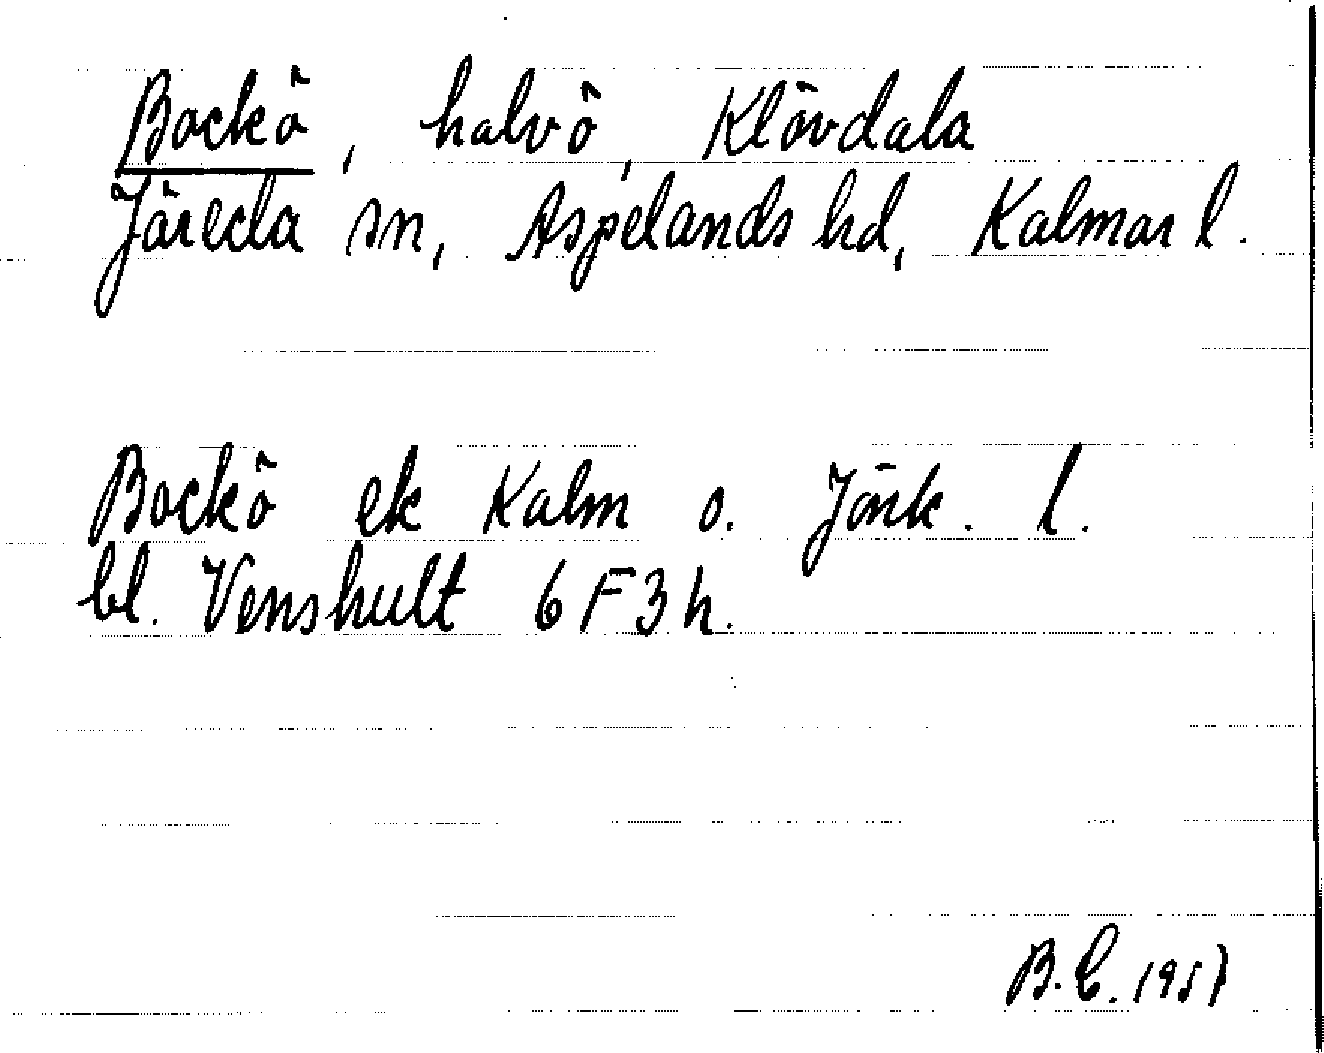 Bockö, halvö, Klövdala
Järeda sn, Aspelands hd, Kalmar l.
Bockö ek Kalm o. Jönk. l.
bl. Venshult 6F3h.
B.C. 1957